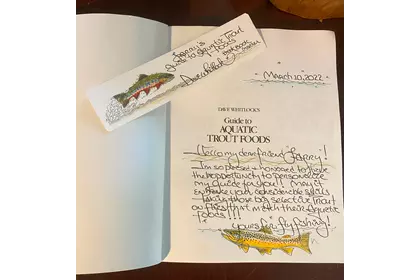 Larry's
Guide to Aquatic Trout
Foods
Book
March 10, 2022
DAVE WHITLOCK'S
Guide to
AQUATIC
TROUT FOODS
Hello my dear friend "Larry"!
I'm so pleased & honored to have
the opportunity to personalize
my Guide for you! May it
enhance your considerable skills
taking those big selective trout
on flies that match their Aquatic
foods!!!
yours for fly fishing!